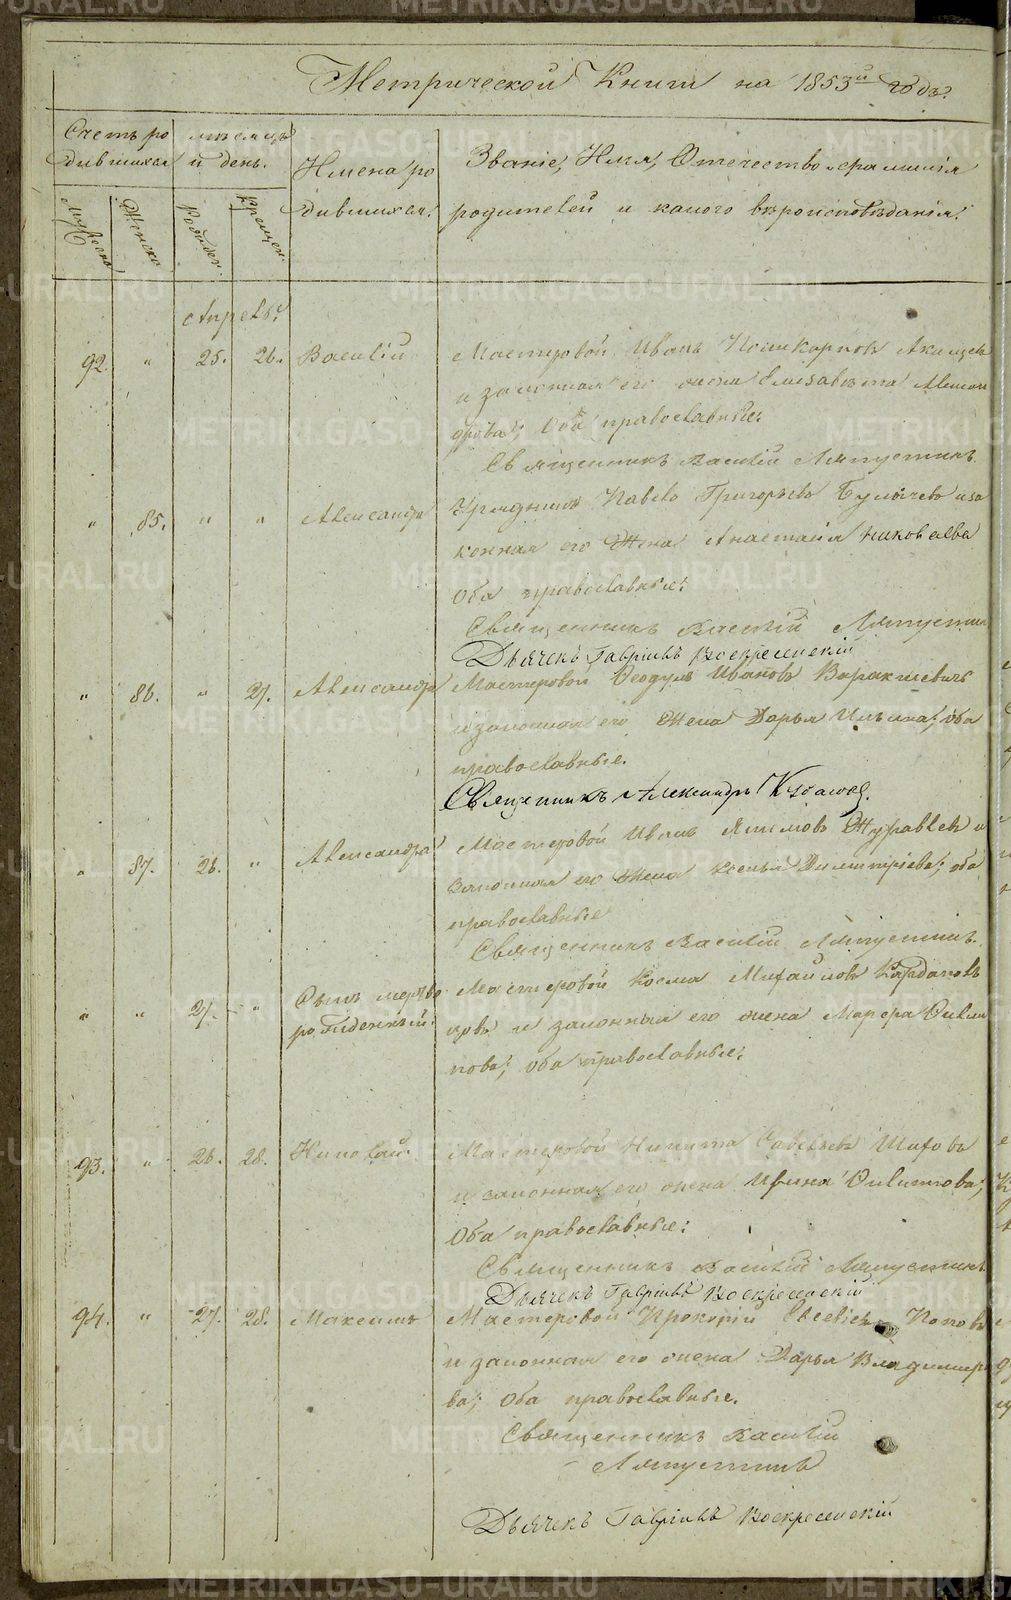 Метрической Книги на 1853й годъ.
Счетъ ро
дившихся
мѣсяцъ
и день.
Имена ро
дившихся.
Званіе, Имя, Отечество и фамилія
родителей и какого вѣроисповѣданія.
Мужеска
Женска
Рожден.
Крещен.
Апрель.
92. " 25. 26. Василій Мастеровой Иванъ Поликарповъ
и законная его жена Елисавета Алексан
дрова; Оба православные.
Священникъ Василій Ляпустинъ.
" 85. " " Александра Урядникъ Павелъ Григорьевъ Булычевъ и за
конная его Жена Анастасія Николаева
Оба православные.
Священникъ Василій Ляпустин
Дьячекъ Гавріилъ Воскресенскій
" 86. " 27. Александра Мастеровой Ѳеодулъ Ивановъ Варакшевичъ
и законная его Жена Дарья Ильина; оба
православные.
Священникъ Александръ
" 87. 26. " Александра Мастеровой Иванъ Якимовъ Журавлевъ и
законная его Жена Ксенья Димитріева; оба
православные
Священникъ Василій Ляпустинъ.
" " 27. " Сынъ мертво Мастеровой Косма Михайловъ
рожденный. и законная его жена Марфа Филип
пова; оба православные.
93. " 26. 28. Николай. Мастеровой Никита Савельевъ Шиховъ
и законная его жена Ирина Филиппова;
Оба православные.
Священникъ Василій Ляпустинъ
Дьячекъ Гавріилъ Воскресенскій
94. " 27. 28. Максимъ Мастеровой Прокопій Евсевіевъ Поповъ
и законная его жена Дарья Владимиро
ва; Оба православные.
Священникъ Василій
Ляпустинъ
Дьячекъ Гавріилъ Воскресенскій
METRIKI.GASO-URAL.RU